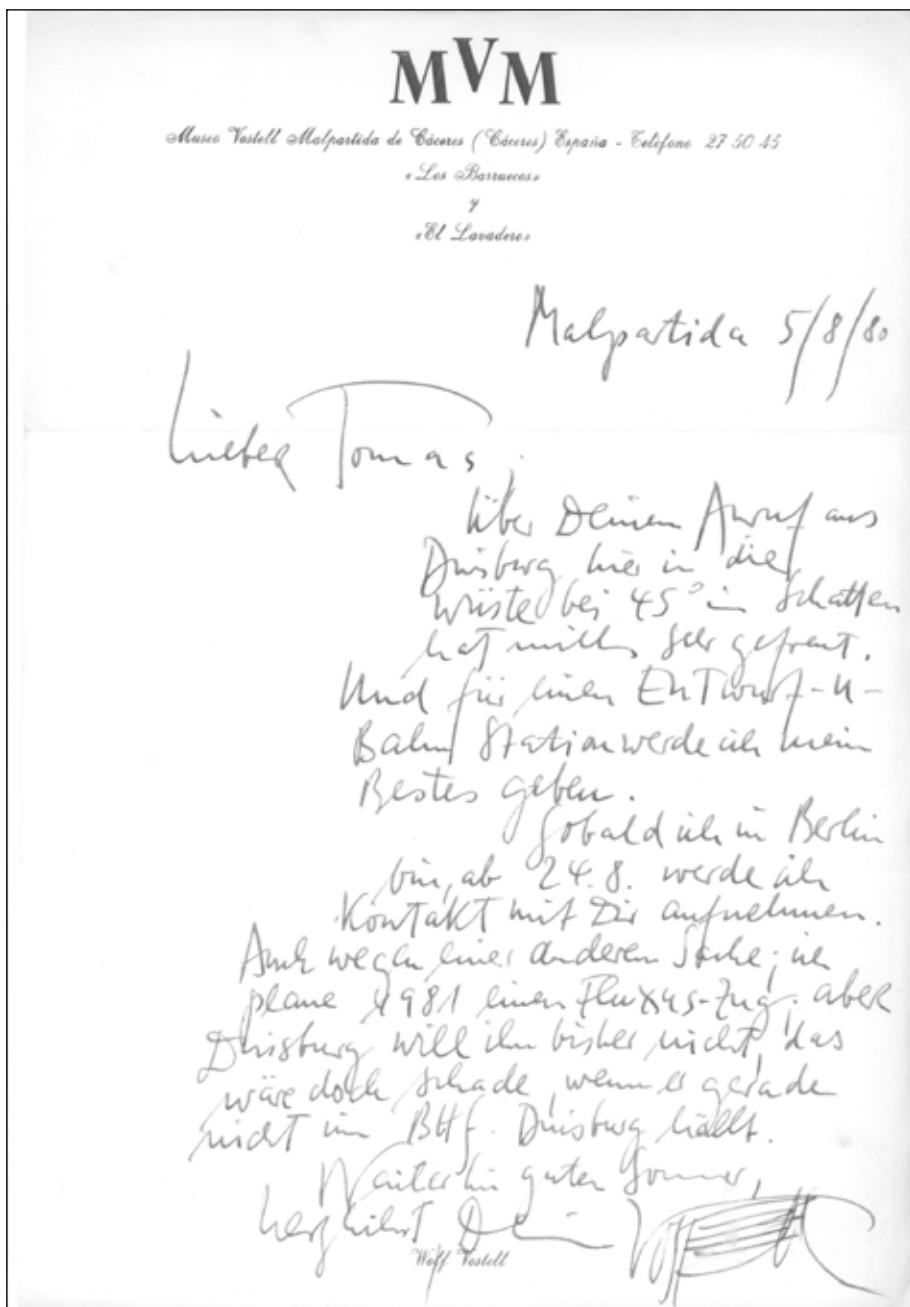 MVM
Museo Vostell Malpartida de Cáceres (Cáceres) España - Teléfono 27 50 45
«Los Barruecos»
y
«El Lavadero»
Malpartida 5/8/80
Lieber Tomas,
über Deinen Anruf aus
Duisburg hier in die
Wüste bei 45° im Schatten
hat mich sehr gefreut.
Und für einen Entwurf-U-
Bahn Station werde ich mein
Bestes geben.
Sobald ich in Berlin
bin, ab 24.8. werde ich
Kontakt mit Dir aufnehmen.
Auch wegen einer anderen Sache; ich
plane 1981 einen Fluxus-Zug, aber
Duisburg will ihn bisher nicht, das
wäre doch schade, wenn er gerade
nicht im BHf. Duisburg hällt.
Weiterhin guten Sommer,
herzlichst Dein
Wolf Vostell